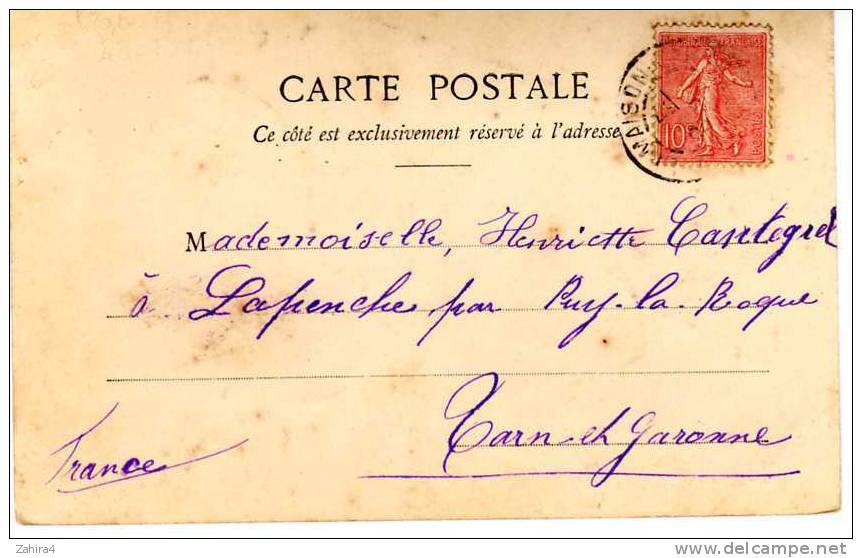 CARTE POSTALE
Ce côté est exclusivement réservé à l'adresse
MAISON
10c
POSTES
Mademoiselle, Henriette Cantegrel
à Lapenche par Puy-la-Roque
Tarn-et Garonne
France
Zahira4
delcampe.net